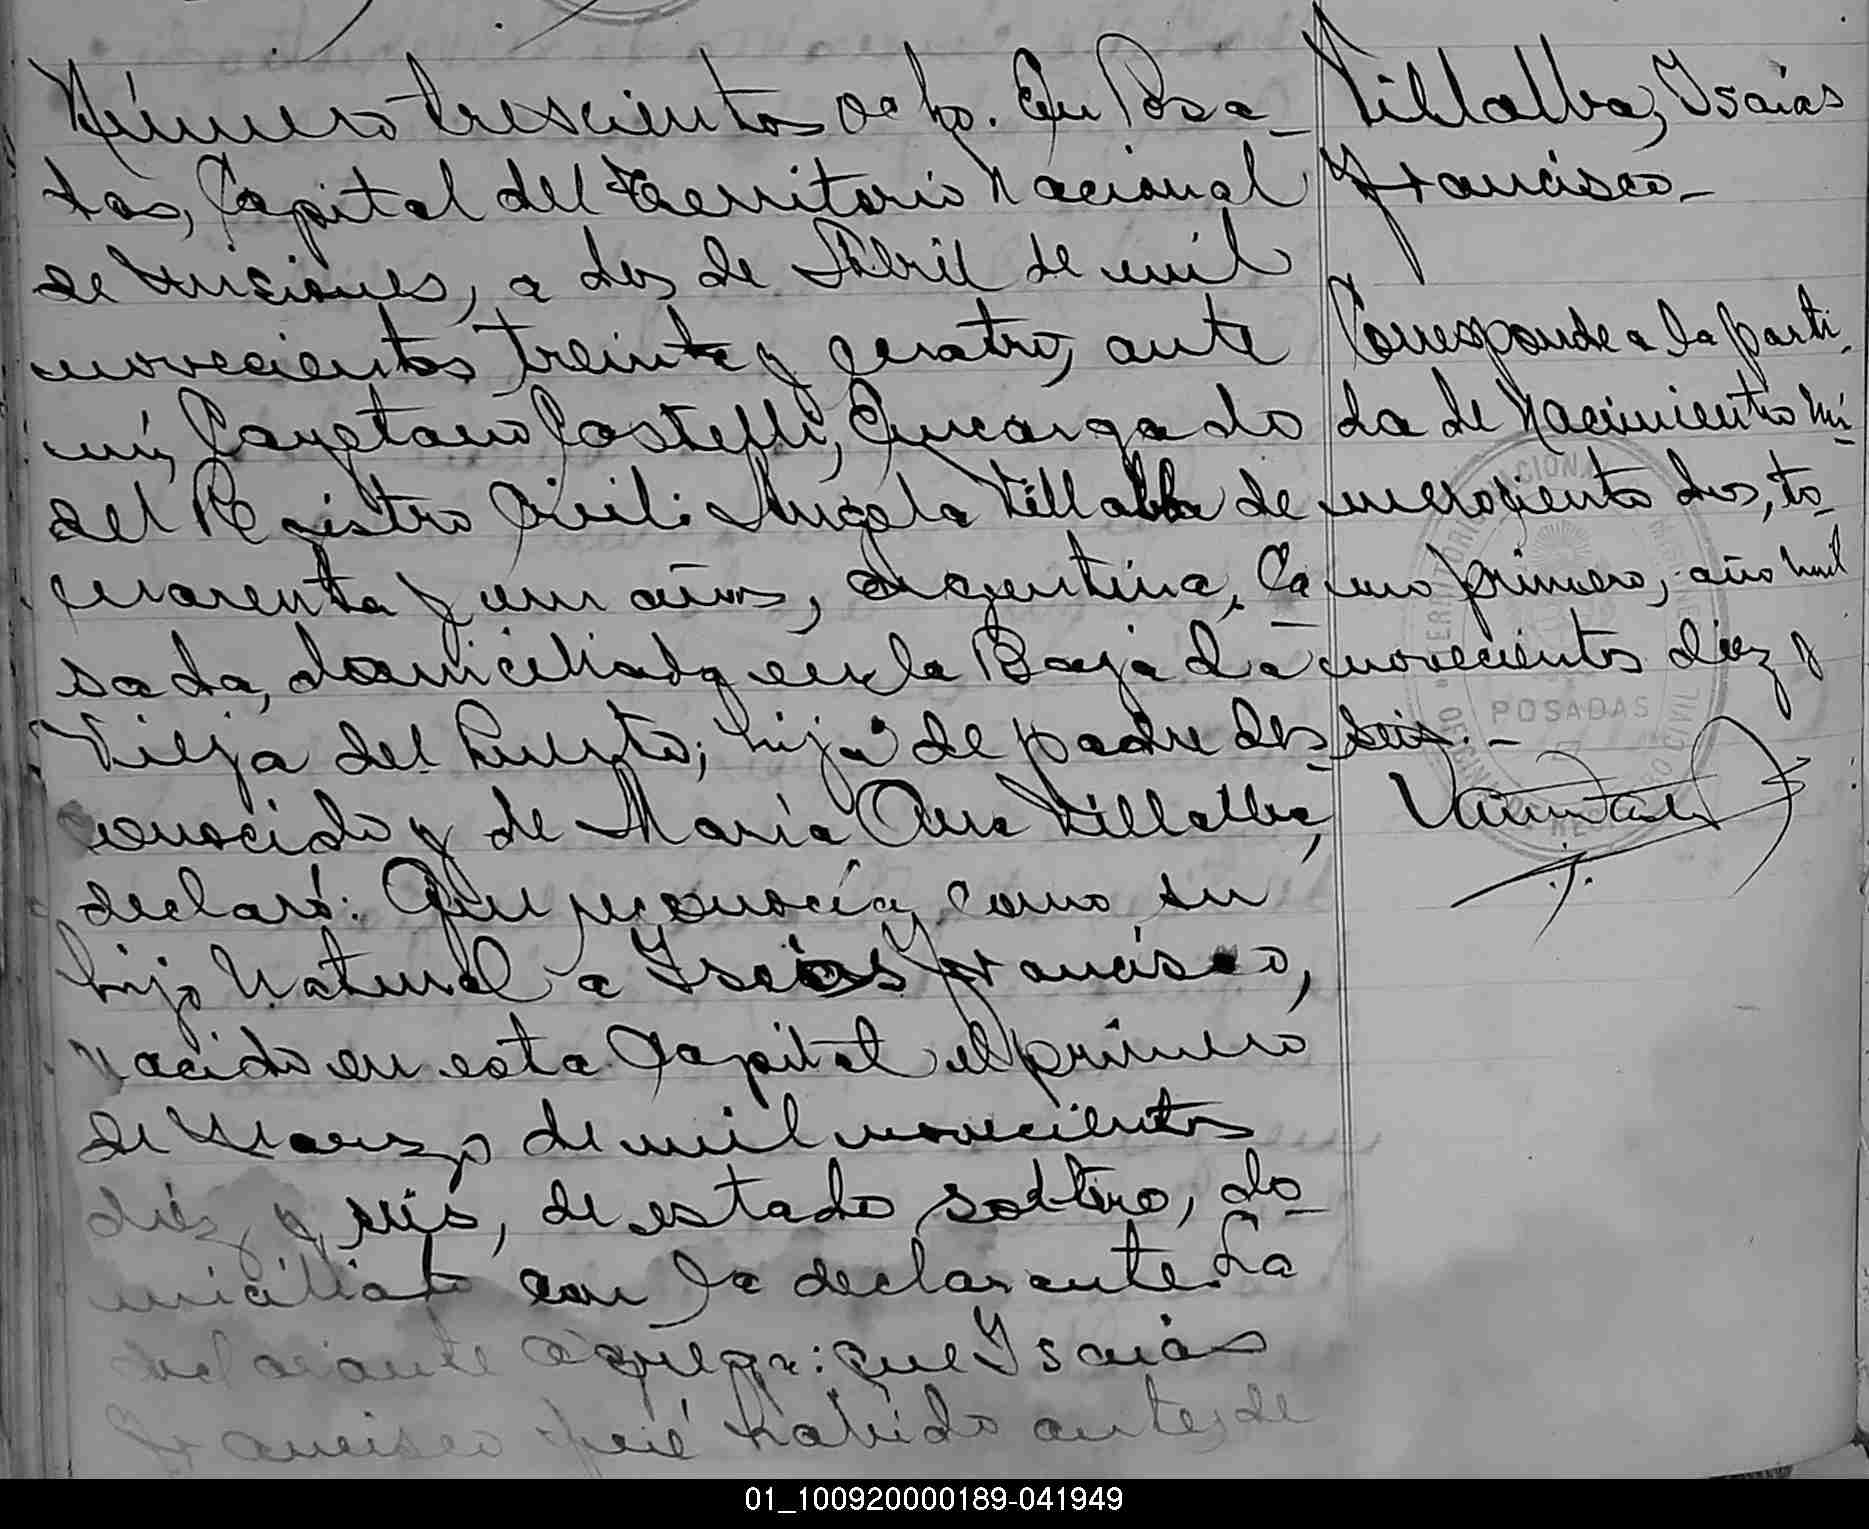 Número trescientos ocho. En Posa-
das, Capital del Territorio Nacional
de Misiones, a dos de Abril de mil
novecientos treinta y cuatro, ante
mí, Cayetano Castelli, Encargado
del Registro Civil: Angela Villalba de
cuarenta y un años, argentina, Ca-
sada, domiciliada en la Bajada
Vieja del Puerto, hija de padre des-
conocido y de María Ana Villalba,
declaró: Que reconocía como su
hijo natural a Ysaias Francisco,
nacido en esta Capital el primero
de Marzo de mil novecientos
diez y seis, de estado soltero, do-
miciliado con la declarante. La
declarante agrega: que Ysaias
Francisco fué habido antes de
Villalba, Ysaias
Francisco.-
Corresponde a la parti-
da de Nacimiento nú-
mero ciento dos, to-
mo primero, año mil
novecientos diez y
seis.-
TERRITORIO NACIONAL MISIONES
POSADAS
OFICINA REGISTRO CIVIL
01_100920000189-041949